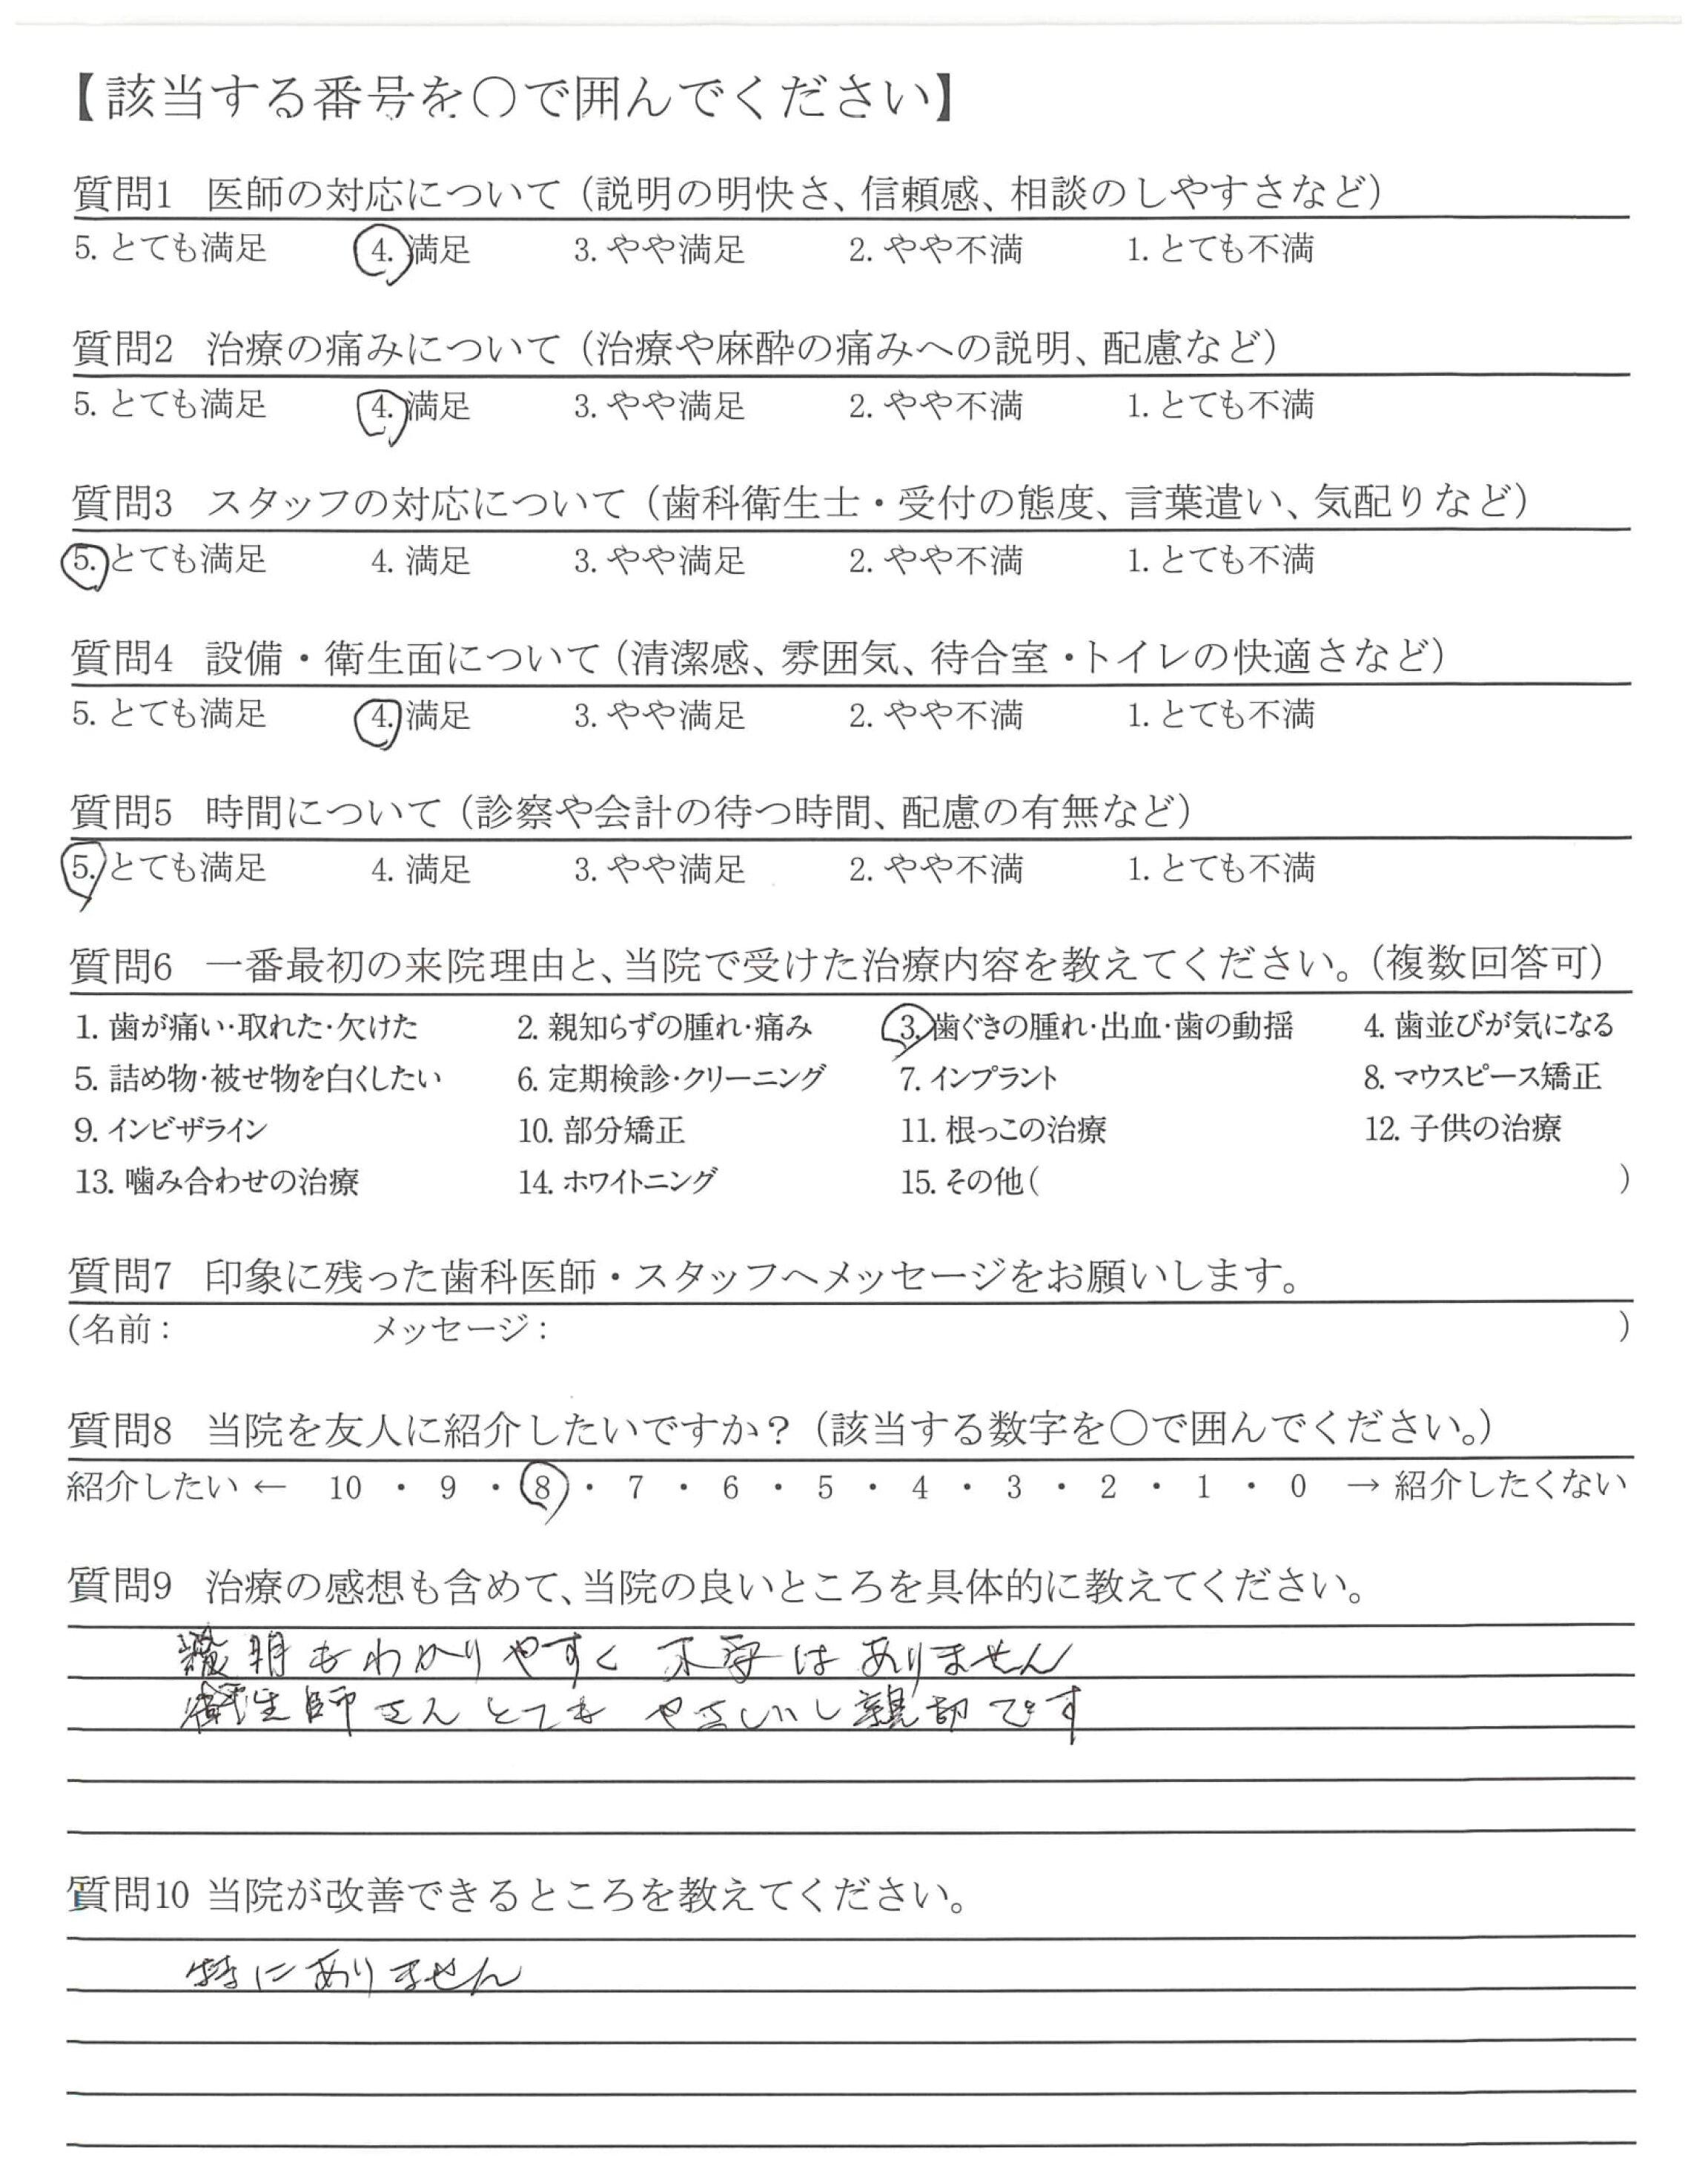 【該当する番号を○で囲んでください】
質問1 医師の対応について（説明の明快さ、信頼感、相談のしやすさなど）
5. とても満足 4. 満足 3. やや満足 2. やや不満 1. とても不満
質問2 治療の痛みについて（治療や麻酔の痛みへの説明、配慮など）
5. とても満足 4. 満足 3. やや満足 2. やや不満 1. とても不満
質問3 スタッフの対応について（歯科衛生士・受付の態度、言葉遣い、気配りなど）
5. とても満足 4. 満足 3. やや満足 2. やや不満 1. とても不満
質問4 設備・衛生面について（清潔感、雰囲気、待合室・トイレの快適さなど）
5. とても満足 4. 満足 3. やや満足 2. やや不満 1. とても不満
質問5 時間について（診察や会計の待つ時間、配慮の有無など）
5. とても満足 4. 満足 3. やや満足 2. やや不満 1. とても不満
質問6 一番最初の来院理由と、当院で受けた治療内容を教えてください。（複数回答可）
1. 歯が痛い・取れた・欠けた 2. 親知らずの腫れ・痛み 3. 歯ぐきの腫れ・出血・歯の動揺 4. 歯並びが気になる
5. 詰め物・被せ物を白くしたい 6. 定期検診・クリーニング 7. インプラント 8. マウスピース矯正
9. インビザライン 10. 部分矯正 11. 根っこの治療 12. 子供の治療
13. 噛み合わせの治療 14. ホワイトニング 15. その他（ ）
質問7 印象に残った歯科医師・スタッフへメッセージをお願いします。
（名前： メッセージ： ）
質問8 当院を友人に紹介したいですか？（該当する数字を○で囲んでください。）
紹介したい ← 10 ・ 9 ・ 8 ・ 7 ・ 6 ・ 5 ・ 4 ・ 3 ・ 2 ・ 1 ・ 0 → 紹介したくない
質問9 治療の感想も含めて、当院の良いところを具体的に教えてください。
説明もわかりやすく 不安はありません
衛生師さんとても やさしいし親切です
質問10 当院が改善できるところを教えてください。
特にありません